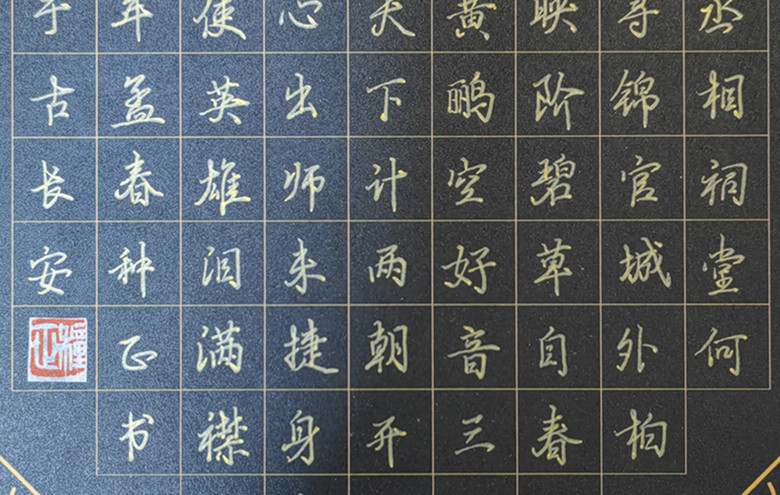 丞相祠堂何
寻锦官城外柏
映阶碧草自春
黄鹂空好音三
天下计两朝开
心出师未捷身
使英雄泪满襟
年孟春种正书
于古长安